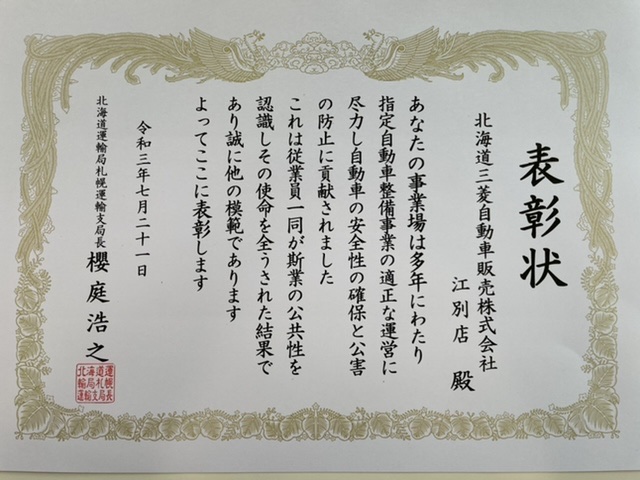 表彰状
北海道三菱自動車販売株式会社
江別店 殿
あなたの事業場は多年にわたり
指定自動車整備事業の適正な運営に
尽力し自動車の安全性の確保と公害
の防止に貢献されました
これは従業員一同が斯業の公共性を
認識しその使命を全うされた結果で
あり誠に他の模範であります
よってここに表彰します
令和三年七月二十一日
北海道運輸局札幌運輸支局長 櫻庭浩之
北海道運輸局札幌運輸支局長